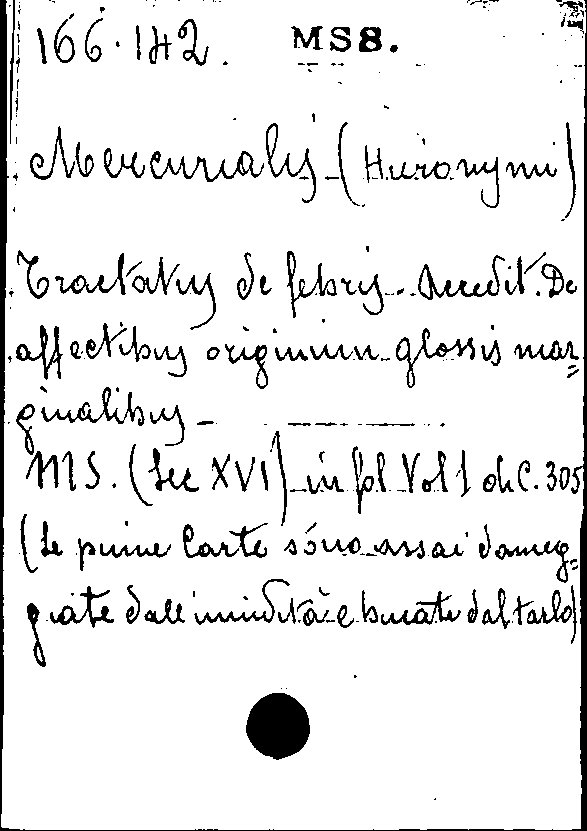 166.142. MSS.
Mercurialis (Hieronymi)
Tractatus de febris. Accedit. De
affectibus originum glossis mar=
ginalibus -
MS. (Sec XVI) in fol Vol 1 di C. 305
(Le prime Carte sono assai dameg=
giate dall'umidità e bucate dal tarlo)